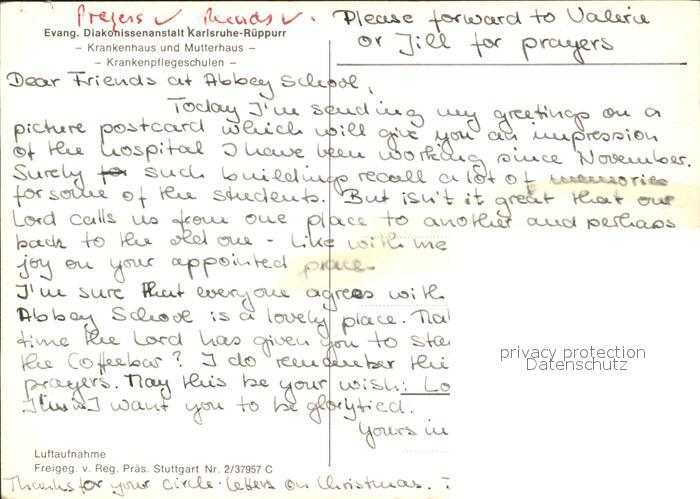 Prayers ✓ Records ✓.
Please forward to Valerie
or Jill for prayers
Evang. Diakonissenanstalt Karlsruhe-Rüppurr
– Krankenhaus und Mutterhaus –
– Krankenpflegeschulen –
Dear Friends at Abbey School,
Today I'm sending my greetings on a
picture postcard which will give you an impression
of the hospital I have been working since November.
Surely such buildings recall a lot of memories
for some of the students. But isn't it great that our
Lord calls us from one place to another and perhaps
back to the old one - like with me
joy on your appointed place.
I'm sure that everyone agrees with
Abbey School is a lovely place.
time the Lord has given you to
the Coffeebar? I do remember
prayers. May this be your wish:
I want you to be glorified.
Yours in
Luftaufnahme
Freigeg. v. Reg. Präs. Stuttgart Nr. 2/37957 C
Thanks for your circle-letters on Christmas.
privacy protection
Datenschutz